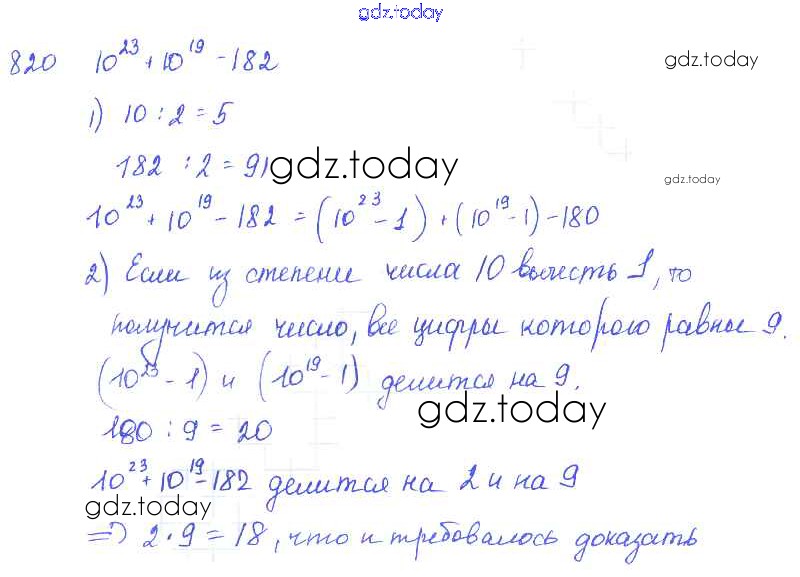 gdz.today
820 10²³ + 10¹⁹ - 182
gdz.today
1) 10 : 2 = 5
182 : 2 = 91
gdz.today
gdz.today
10²³ + 10¹⁹ - 182 = (10²³ - 1) + (10¹⁹ - 1) - 180
2) Если из степени числа 10 вычесть 1, то
получится число, все цифры которого равны 9.
(10²³ - 1) и (10¹⁹ - 1) делится на 9.
gdz.today
180 : 9 = 20
10²³ + 10¹⁹ - 182 делится на 2 и на 9
gdz.today
=> 2 · 9 = 18, что и требовалось доказать